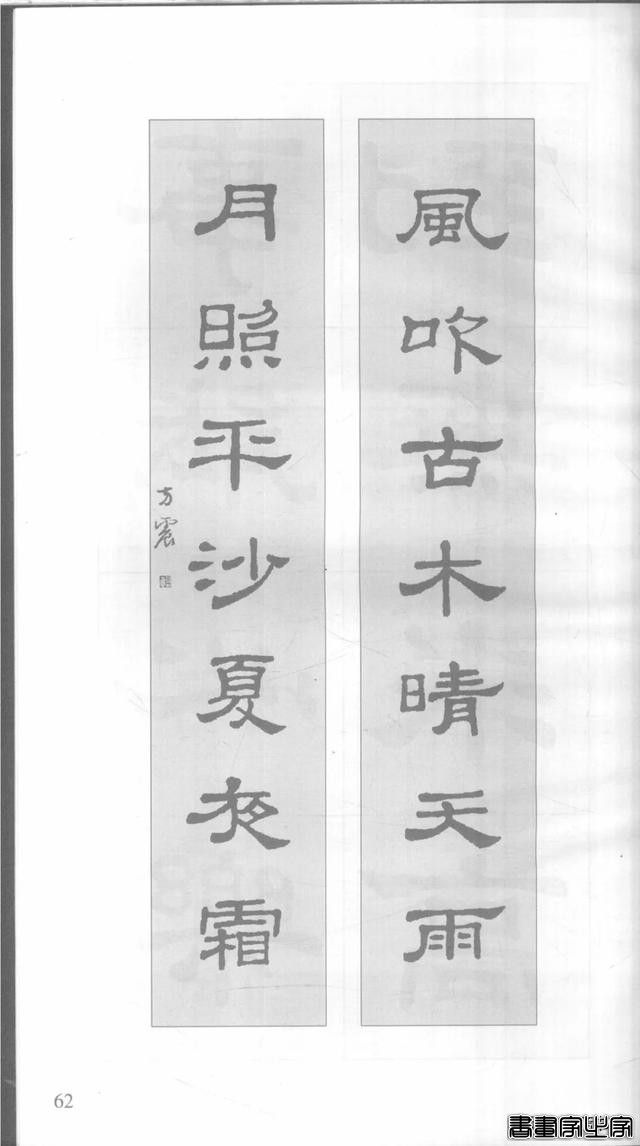 風吹古木晴天雨
月照平沙夏夜霜
方震
62
書畫家必字